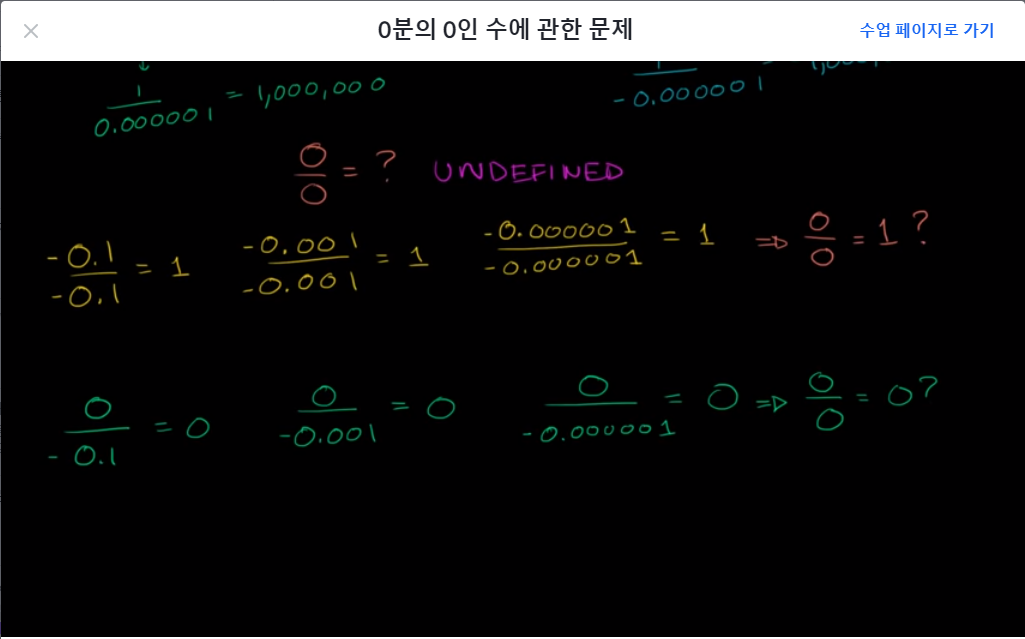 0분의 0인 수에 관한 문제
수업 페이지로 가기
1/0.000001 = 1,000,000
-0.000001
0/0 = ? UNDEFINED
-0.1/-0.1 = 1
-0.001/-0.001 = 1
-0.000001/-0.000001 = 1 ⇒ 0/0 = 1 ?
0/-0.1 = 0
0/-0.001 = 0
0/-0.000001 = 0 ⇒ 0/0 = 0?